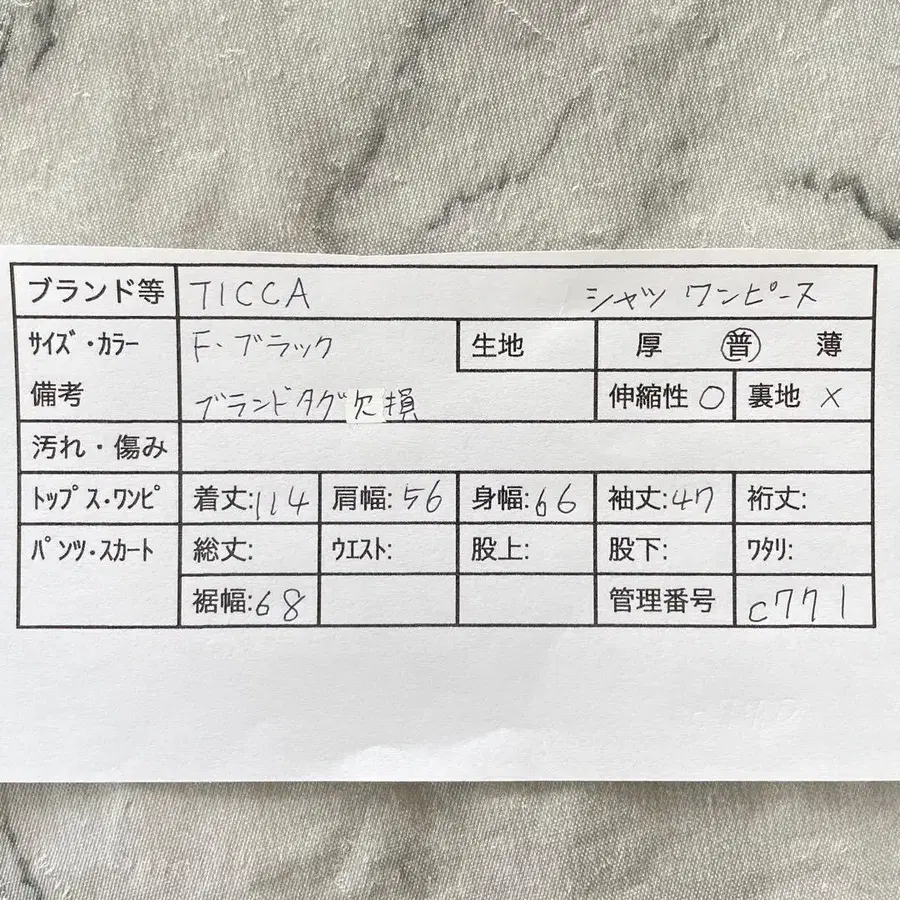 ブランド等 TICCA シャツ ワンピース
サイズ・カラー F・ブラック 生地 厚 普 薄
備考 ブランドタグ欠損 伸縮性 ○ 裏地 ×
汚れ・傷み
トップス・ワンピ 着丈:114 肩幅:56 身幅:66 袖丈:47 裄丈:
パンツ・スカート 総丈: ウエスト: 股上: 股下: ワタリ:
裾幅:68 管理番号 c771